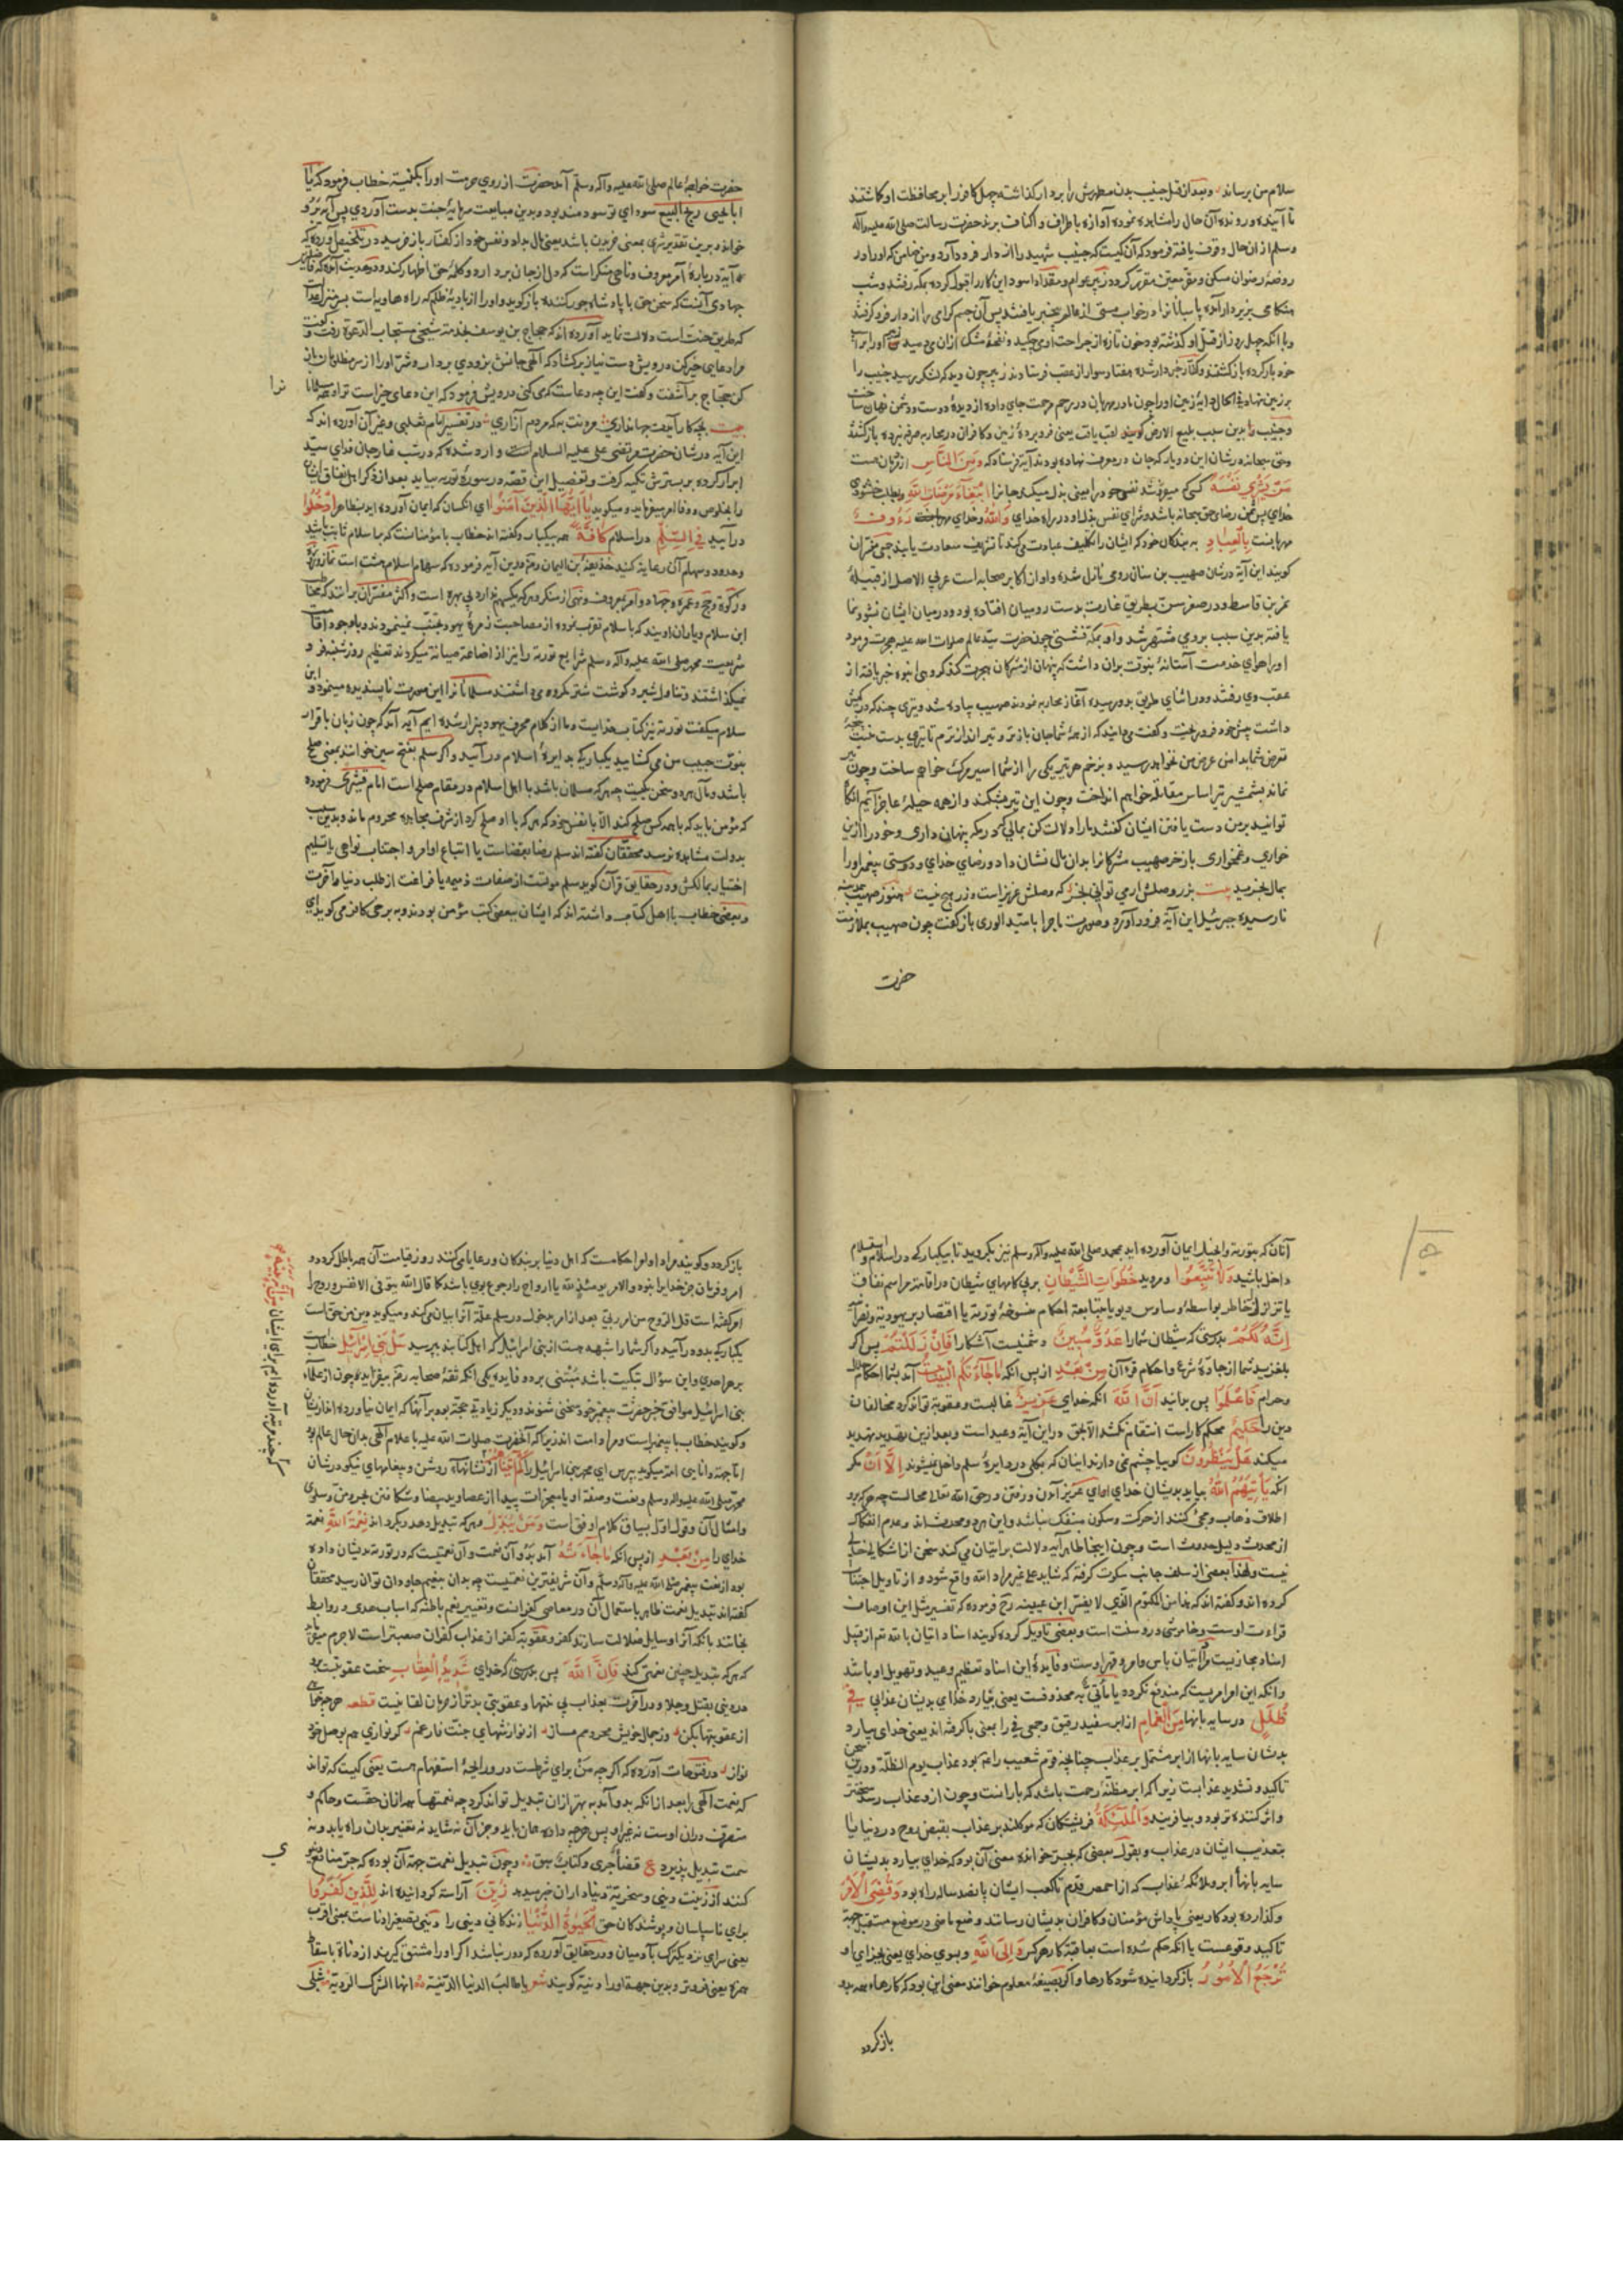 سلام من برساند و بعد از قتل خبیب بدن مطهرش را بر دار کذاشته چهل کافر را بر محافظت او کماشتند
تا آینده و رونده آن حال را مشاهده نموده آوازه باطراف و اکناف برند حضرت رسالت صلی الله علیه وآله
وسلم از آن حال وقوف یافته فرمود که آن کیست که خبیب شهید را از دار فرود آرد و من ضامن که او را در
روضه رضوان مسکنی و مقر معین مقرر کردد زبیر عوام و مقداد اسود این کار را قبول کرده بمکه رفتند و شب
هنکامی بزیر دار آمده پاسبانانرا در خواب مستی از عالم بیخبر یافتند پس آن جسم کرامی را از دار فرو کرفتند
و با انکه چهل روز از قتل او کذشته بود خون تازه از جراحت او می چکید و نفحه مشک از ان می دمید زبیر او را بر اسب
خود بار کرده باز کشتند و کفار خبردار شده هفتاد سوار از عقب فرستادند زبیر چون دید که لشکر برسید خبیب را
بر زمین نهاد فی الحال دایه زمین او را چون مادر مهربان در رحم مرحمت جای داد و از دیده دوست و دشمن نهان ساخت
و خبیب را بدین سبب بلیع الارض کویند لقب یافت یعنی فرو برده زمین و کافران در محاربه صرفه نبرده باز کشتند
وحق سبحانه در شان این دو یار که جان در معرض نهاده بودند آیه فرستاد که وَمِنَ النَّاسِ از مردمان هست
مَنْ يَشْرِي نَفْسَهُ کسی که میفروشد نفس خود را یعنی بذل میکند جانرا ابْتِغَاءَ مَرْضَاتِ اللَّهِ بطلب خشنودی
خدای پس ثمن رضای حق سبحانه باشد و شرای نفس بذل او در راه خدای وَاللَّهُ و خدای رَءُوفٌ
مهربانست بِالْعِبَادِ به بندکان خود که ایشان را تکلیف عبادت می کند تا بشرف سعادت یابند جمعی مفسران
کویند این آیه در شان صهیب بن سنان رومی نازل شده و او از اکابر صحابه است عربی الاصل از قبیله
نمر بن قاسط و در صغر سن بطریق غارت بدست رومیان افتاده بود و در میان ایشان نشو و نما
یافته بدین سبب برومی مشتهر شد و او بمکه نشستی چون حضرت سید عالم صلوات الله علیه هجرت فرمود
او را هوای خدمت آستانه نبوت بران داشت که پنهان از مشرکان هجرت کند کروهی انبوه خبر یافته از
عقب وی رفتند و در اثنای طریق بدو رسیده آغاز محاربه نمودند صهیب پیاده شد و تیری چند که در کیش
داشت پیش خود فرو ریخت و کفت می دانید که از همه شما جان بازتر و تیر اندازترم تا تیری بدست
تعرض شما بدامن عرض من نخواهد رسید و بزخم هر تیر یکی را از شما اسیر مرک خواهم ساخت و چون تیر
نماند بشمشیر تیز اساس مقاتله خواهم انداخت و چون این تیر بشکند و از همه حیله عاجز آیم انکاه
توانید بر من دست یافتن ایشان کفتند ما را دلالت کن بمالی که در مکه پنهان داری و خود را ازین
خواری و غمخواری باز خر صهیب مشرکانرا بدان مال نشان داد و رضای خدای و دوستی پیغمبر او را
بمال بخرید بیت بزر وصلش ار می توانی بخر که وصلش عزیز است و زر هیچ نیست هنوز صهیب بمدینه
نارسیده جبرئیل این آیه فرود آورد و صورت ماجرا با سید الوری باز کفت چون صهیب بملازمت
حضرت
حضرت خواجه عالم صلی الله علیه وآله وسلم آمد حضرت از روی حرمت او را بکنیت خطاب فرمود که یا
ابا یحیی ربح البیع سودای تو سودمند بود و بدین مبایعت سرمایه جنت بدست آوردی پس آیه برو
خواند و برین تقدیر شری بمعنی خریدن باشد یعنی مال بداد و نفس خود از کفار باز خرید در تلخیص آورده که
آیه درباره آمر معروف و ناهی منکر است که دل از جان بردارد و کلمه حق اظهار کند و در حدیث آمده که فاضلترین
جهادی آنست که سخن حق با پادشاه جور کننده باز کوید و او را از بادیه ظلم که راه هاویه است بسر منزل عدالت
که طریق جنت است دلالت نماید آورده اند که حجاج بن یوسف بخدمت شیخی مستجاب الدعوة رفت و کفت
مرا دعایی خیر کن درویش دست نیاز برکشاد که الهی جانش بزودی بردار و شر او را از سر مظلومان باز
کن حجاج برآشفت و کفت این چه دعاست که می کنی درویش فرمود که این دعای خیر است ترا و همه مسلمانانرا
بیت بچه کار آیدت جهانداری مردنت به که مردم آزاری در تفسیر امام ثعلبی و غیر آن آورده اند که
این آیه در شان حضرت مرتضی علی علیه السلام وارد شده که در شب غار جان فدای سید
ابرار کرده بر بسترش تکیه کرفت و تفصیل این قصه در سوره توبه بیاید بعد از ذکر اهل نفاق ایشان
را بخلوص و وفا امر میفرماید و میکوید يَا أَيُّهَا الَّذِينَ آمَنُوا ای انکسان که ایمان آورده اید بظاهر ادْخُلُوا
درآیید فِي السِّلْمِ در اسلام كَافَّةً همه بیکبار و کفته اند خطاب با مؤمنانست که با اسلام ثابت باشید
وحدود وسهام آن رعایت کنید حذیفه بن الیمان رض در این آیه فرموده که سهام اسلام هشت است نماز و روزه
و زکوة و حج و عمره و جهاد و امر بمعروف و نهی از منکر و هر که یک سهم ندارد بی بهره است و اکثر مفسران برانند که مخاطب
ابن سلام و یاران اویند که با اسلام تقرب نموده از مصاحبت زمره یهود تجنب مینمودند و با وجود اقامت
شریعت محمد صلی الله علیه وآله وسلم شرایع توریة را نیز از اضاعت صیانة میکردند تعظیم روز شنبه فرو
نمیکذاشتند و تناول شیر و کوشت شتر مکروه می داشتند مسلمانانرا این صورت ناپسندیده مینمود و ابن
سلام میکفت توریة نیز کتاب خداست و ما از کلام محرف یهود بیزار شده ایم آیه آمد که چون زبان باقرار
نبوت حبیب من می کشایید یکبارکی بدایره اسلام درآیید و اکر سلم بفتح سین خوانند بمعنی صلح
باشد و مآل هر دو سخن یکیست چه هر که مسلمان باشد با اهل اسلام در مقام صلح است امام قشیری فرموده
که مؤمن باید که با همه کس صلح کند الا با نفس خود که هر که با او صلح کرد از شرف مجاهده محروم ماند و بدین سبب
بدولت مشاهده نرسد محققان کفته اند سلم رضا بقضاست یا اتباع اوامر و اجتناب نواهی یا تسلیم
اختیار بمالکش و در حقایق قرآن کوید سلم موتست از صفات ذمیمه یا فراغت از طلب دنیا و آخرت
و بعضی خطاب با اهل کتاب داشته اند که ایشان ببعضی کتب مؤمن بودند و به برخی کافر می کوید ای
آنان که بتوریة و انجیل ایمان آورده اید بمحمد صلی الله علیه وآله وسلم نیز بکروید تا بیکبارکی در اسلام و استسلام
داخل باشید وَلَا تَتَّبِعُوا و مروید خُطُوَاتِ الشَّيْطَانِ بر پی کامهای شیطان در اقامت مراسم نفاق
یا تزلزل خاطر بواسطه وساوس دیو یا متابعت احکام منسوخه توریة یا اقتصار بر یهودیة و نصرانیة
إِنَّهُ لَكُمْ بدرستی که شیطان شما را عَدُوٌّ مُبِينٌ دشمنیست آشکارا فَإِنْ زَلَلْتُمْ پس اکر
بلغزید شما از جاده شرع و احکام قرآن مِنْ بَعْدِ از پس انکه مَا جَاءَتْكُمُ الْبَيِّنَاتُ آمد بشما احکام حلال
و حرام فَاعْلَمُوا پس بدانید أَنَّ اللَّهَ انکه خدای عَزِيزٌ غالبست و عقوبت تواند کرد مخالفان
دین را حَكِيمٌ محکم کار است انتقام نکشد الا بحق و در این آیه وعید است و بعد ازین تهدید بتهدید
میکند هَلْ يَنْظُرُونَ کوییا چشم نمی دارند اینان که بکلی در دایره سلم داخل نمیشوند إِلَّا أَنْ مکر
انکه يَأْتِيَهُمُ اللَّهُ بیاید بدیشان خدای ای عزیز آمدن و رفتن در حق الله تعالی محالست چه هر که برو
اطلاق ذهاب و مجی کنند از حرکت و سکون منفک نباشد و این هر دو محدث اند و عدم انفکاک
از محدث دلیل حدوث است و چون اینجا ظاهر آیه دلالت بر اتیان می کند سخن از اشکالی خالی
نیست و لهذا بعضی از سلف جانب سکوت کرفته که شاید علی غیر مراد الله واقع شود و از تاویل اجتناب
کرده اند و کفته اند که هذا من المکتوم الذی لا یفسر ابن عیینه رح فرموده که تفسیر مثل این اوصاف
قراءت اوست و خاموشی در وسنت است و بعضی تاویل کرده کویند اسناد اتیان بالله تع از قبیل
اسناد مجازیست مراد اتیان باس و امر و قهر اوست و فایده این اسناد تعظیم وعید و تهویل او باشد
و انکه این امر امریست که مندفع نکردد یا مأتی به محذوفست یعنی بیارد خدای بدیشان عذابی فِي
ظُلَلٍ در سایه بانها مِنَ الْغَمَامِ از ابر سفید رقیق و جمعی فی را بمعنی با کرفته اند یعنی خدای بیارد
بدیشان سایه بانها از ابر مشتمل بر عذاب چنانچه قوم شعیب را عم بود عذاب یوم الظلة و درین سخن
تاکید و تشدید عذابست زیرا که ابر مظنه رحمت باشد که بارانست و چون از و عذاب رسد سخت تر
و اثر کننده تر بود و بیافرینند وَالْمَلَائِكَةُ فریشتکان که موکلند بر عذاب بقبض روح در دنیا یا
بتعذیب ایشان در عذاب و بقول بعضی که بجر خوانده معنی آن بود که خدای بیارد بدیشان
سایه بانها ابر و ملائکه عذاب که از اخمص قدم تا کعب ایشان پانصد ساله راه بود وَقُضِيَ الْأَمْرُ
و کذارده بود کار یعنی پاداش مؤمنان و کافران بدیشان رسانند وضع ماضی در موضع مستقبل جهة
تاکید وقوعست یا انکه حکم شده است بعاقبت کار هر کس وَإِلَى اللَّهِ و بسوی خدای یعنی بجزای او
تُرْجَعُ الْأُمُورُ باز کردانیده شود کارها و اکر بصیغه معلوم خوانند معنی این بود که کارها همه بدو
باز کردد
باز کردد و کویند مراد اوامر و احکامست که اهل دنیا بر بندکان و رعایا می کنند روز قیامت آن همه باطل کردد و
امر و فرمان جز خدایرا نبود والامر یومئذ لله یا ارواح را رجوع بوی باشد کما قال الله یتوفی الانفس و روح را
امر کفته است قل الروح من امر ربی بعد از امر بدخول در سلم علت آنرا بیان می کند و میکوید دین من حق است
یکبارکی بدو درآیید و اکر شما را شبهه هست از بنی اسرائیل که اهل کتابند بپرسید سَلْ بَنِي إِسْرَائِيلَ خطابست
بر هر احدی و این سؤال تبکیت باشد مبتنی بر دو فایده یکی انکه تقة صحابه رض بیفزاید چون از علماء
بنی اسرائیل موافق خبر حضرت پیغمبر خود سخنی شنوند و دیکر زیادتی حجة بود بر آنها که ایمان نیاورده اند ازیشان
و کویند خطاب با پیغمبر است و مراد امت اند زیرا که آنحضرت صلوات الله علیه باعلام الهی بدان حال عالم بود
اما جهة دانایی امة میکوید بپرس ای محمد از بنی اسرائیل را كَمْ آتَيْنَاهُمْ از نشانهاء روشن و پیغامهای نیکو در شان
محمد صلی الله علیه وآله وسلم و نعت و صفة او یا معجزات پیدا از عصا و ید بیضا و شکافتن بحر و من و سلوی
و امثال آن و قول اول بسیاق کلام اوفق است وَمَنْ يُبَدِّلْ و هر که تبدیل دهد و بکرداند نِعْمَةَ اللَّهِ نعمة
خدای را مِنْ بَعْدِ از پس انکه مَا جَاءَتْهُ آمد بدو آن نعمت و آن نعمتیست که در توریة بدیشان داده
بود از نعت پیغمبر صلی الله علیه وآله وسلم و آن شریفترین نعمتیست چه بدان بنعیم جاودان توان رسید محققان
کفته اند تبدیل نعمت ظاهر باستعمال آن در معاصی کفرانست و تغییر نعم باطنه که اسباب هدی و روابط
نجاتند بانکه آنرا وسایل ضلالت سازند کفر و عقوبت کفر از عذاب کفران صعبتر است لاجرم میفرماید
که هر که تبدیل چنین نعمتی کند فَإِنَّ اللَّهَ پس بدرستی که خدای شَدِيدُ الْعِقَابِ سخت عقوبتست برو
در دنیی بقتل و جلا و در آخرت بعذاب بی منتها و عقوبتی بدتر از حرمان لقا نیست قطعه هر چه خواهی
از عقوبتها بکن وز جمال خویش محرومم مساز از نوازشهای جنت فارغم کر نوازی هم بوصل خود
نواز در فتوحات آورده که اکر چه من برای شرطست در و رایحه استفهام هست یعنی کیست که تواند
که نعمت الهی را بعد از انکه بدو آمد به بهتر ازان تبدیل تواند کرد چه نعمتها همه از ان حقست و حاکم و
متصرف دران اوست نه غیر او پس هر چه داده همان باید و جز آن نه شاید نه تغییر بدان راه یابد و نه
سمت تبدیل پذیرد ع قضاء جری و کتاب سبق و چون تبدیل نعمت جهة آن بود که جر منافع دنیوی
کنند از زینت دنیی و سخریه دنیاداران خبر میدهد زُيِّنَ آراسته کردانیده اند لِلَّذِينَ كَفَرُوا
برای ناسپاسان و پوشندکان حق الْحَيَاةُ الدُّنْيَا زندکانی دنیی را و دنیی تصغیر ادناست بمعنی اقرب
یعنی سرای نزدیکترک بآدمیان و در حقایق آورده که دور نباشد اکر او را مشتق کیرند از دناة باسقاط
همزه یعنی فروتر و بدین جهة او را دنیة کویند شعر یا طالب الدنیا الدنیة انها الشرک الردیة شبلی